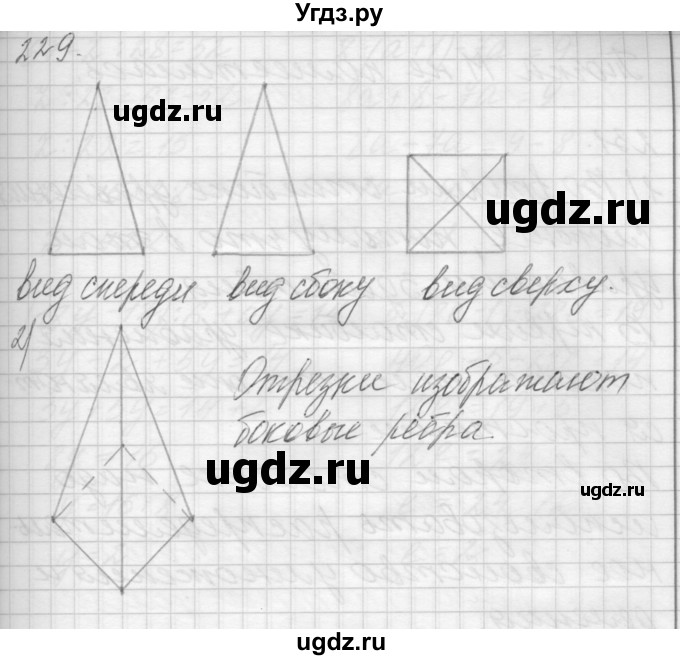 Угдз.ру
229.
ugdz.ru
ugdz.ru
вид спереди вид сбоку вид сверху.
2)
Отрезки изображают
боковые рёбра.
ugdz.ru
ugdz.ru
ugdz.ru